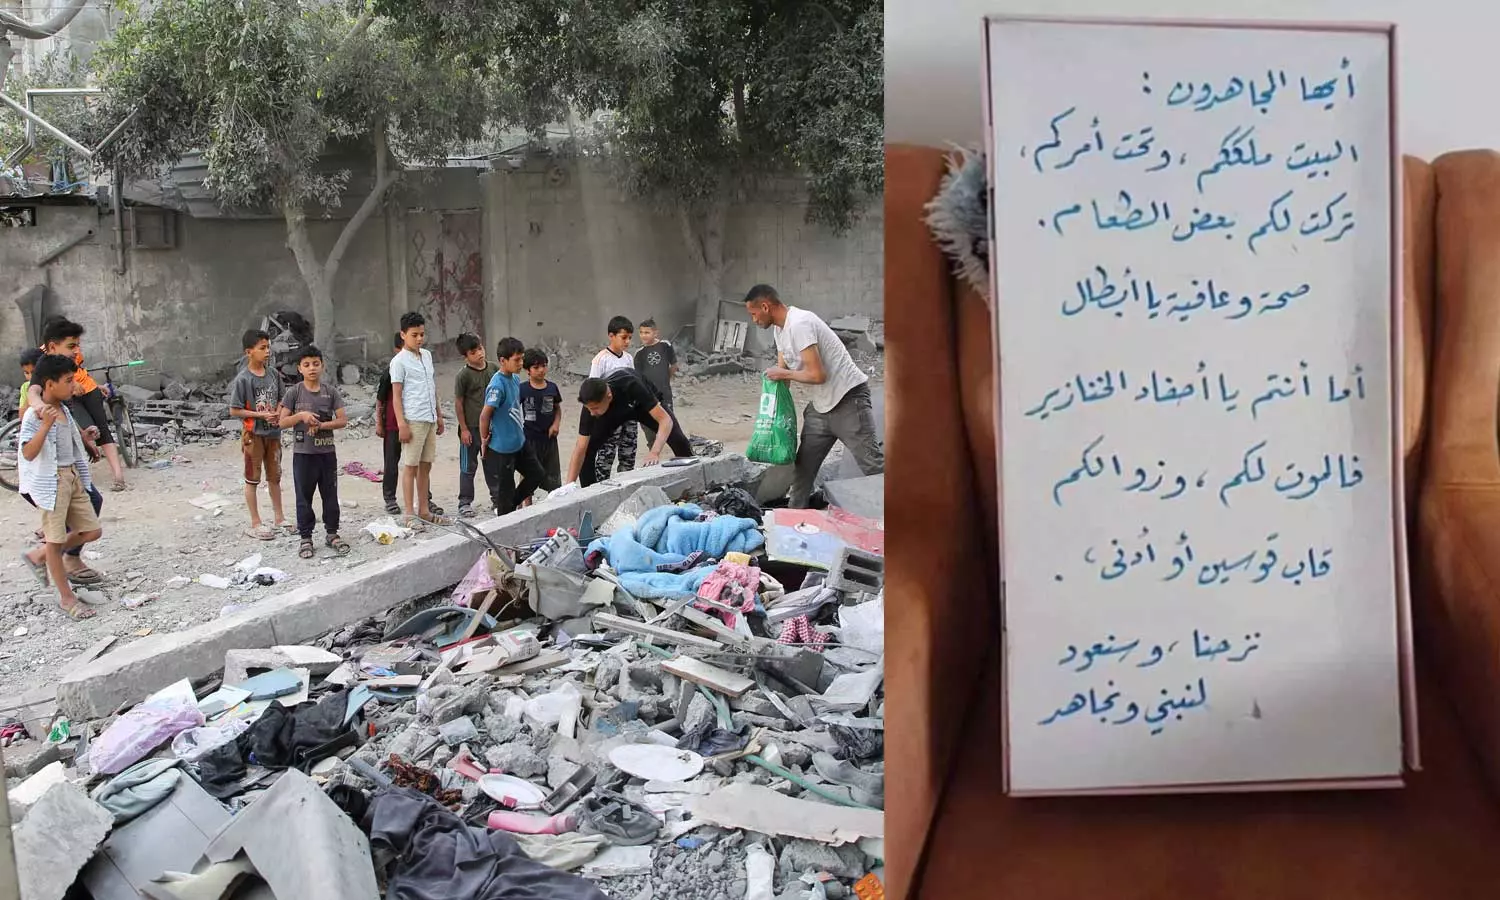 أيها المجاهدون :
البيت ملككم ، وتحت أمركم ،
تركت لكم بعض الطعام .
صحة وعافية يا أبطال
أما أنتم يا أحفاد الخنازير
فالموت لكم ، وزوالكم
قاب قوسين أو أدنى .
نزحنا ، وسنعود
لنبني ونجاهد
DIVISION